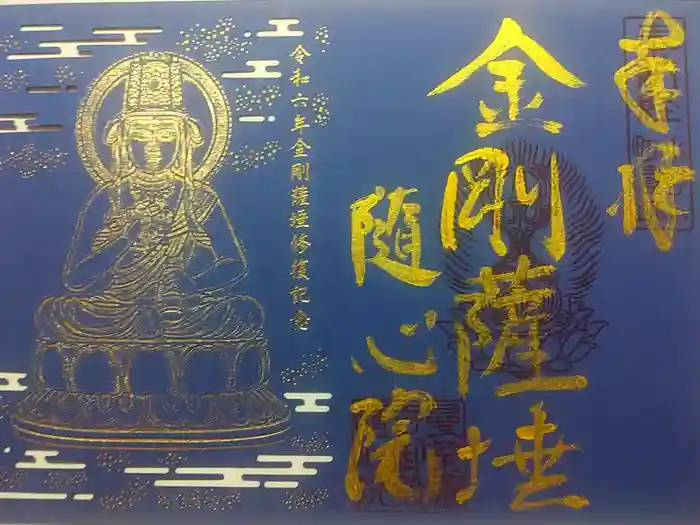 奉拝
金剛薩埵
随心院
令和六年金剛薩埵修復記念